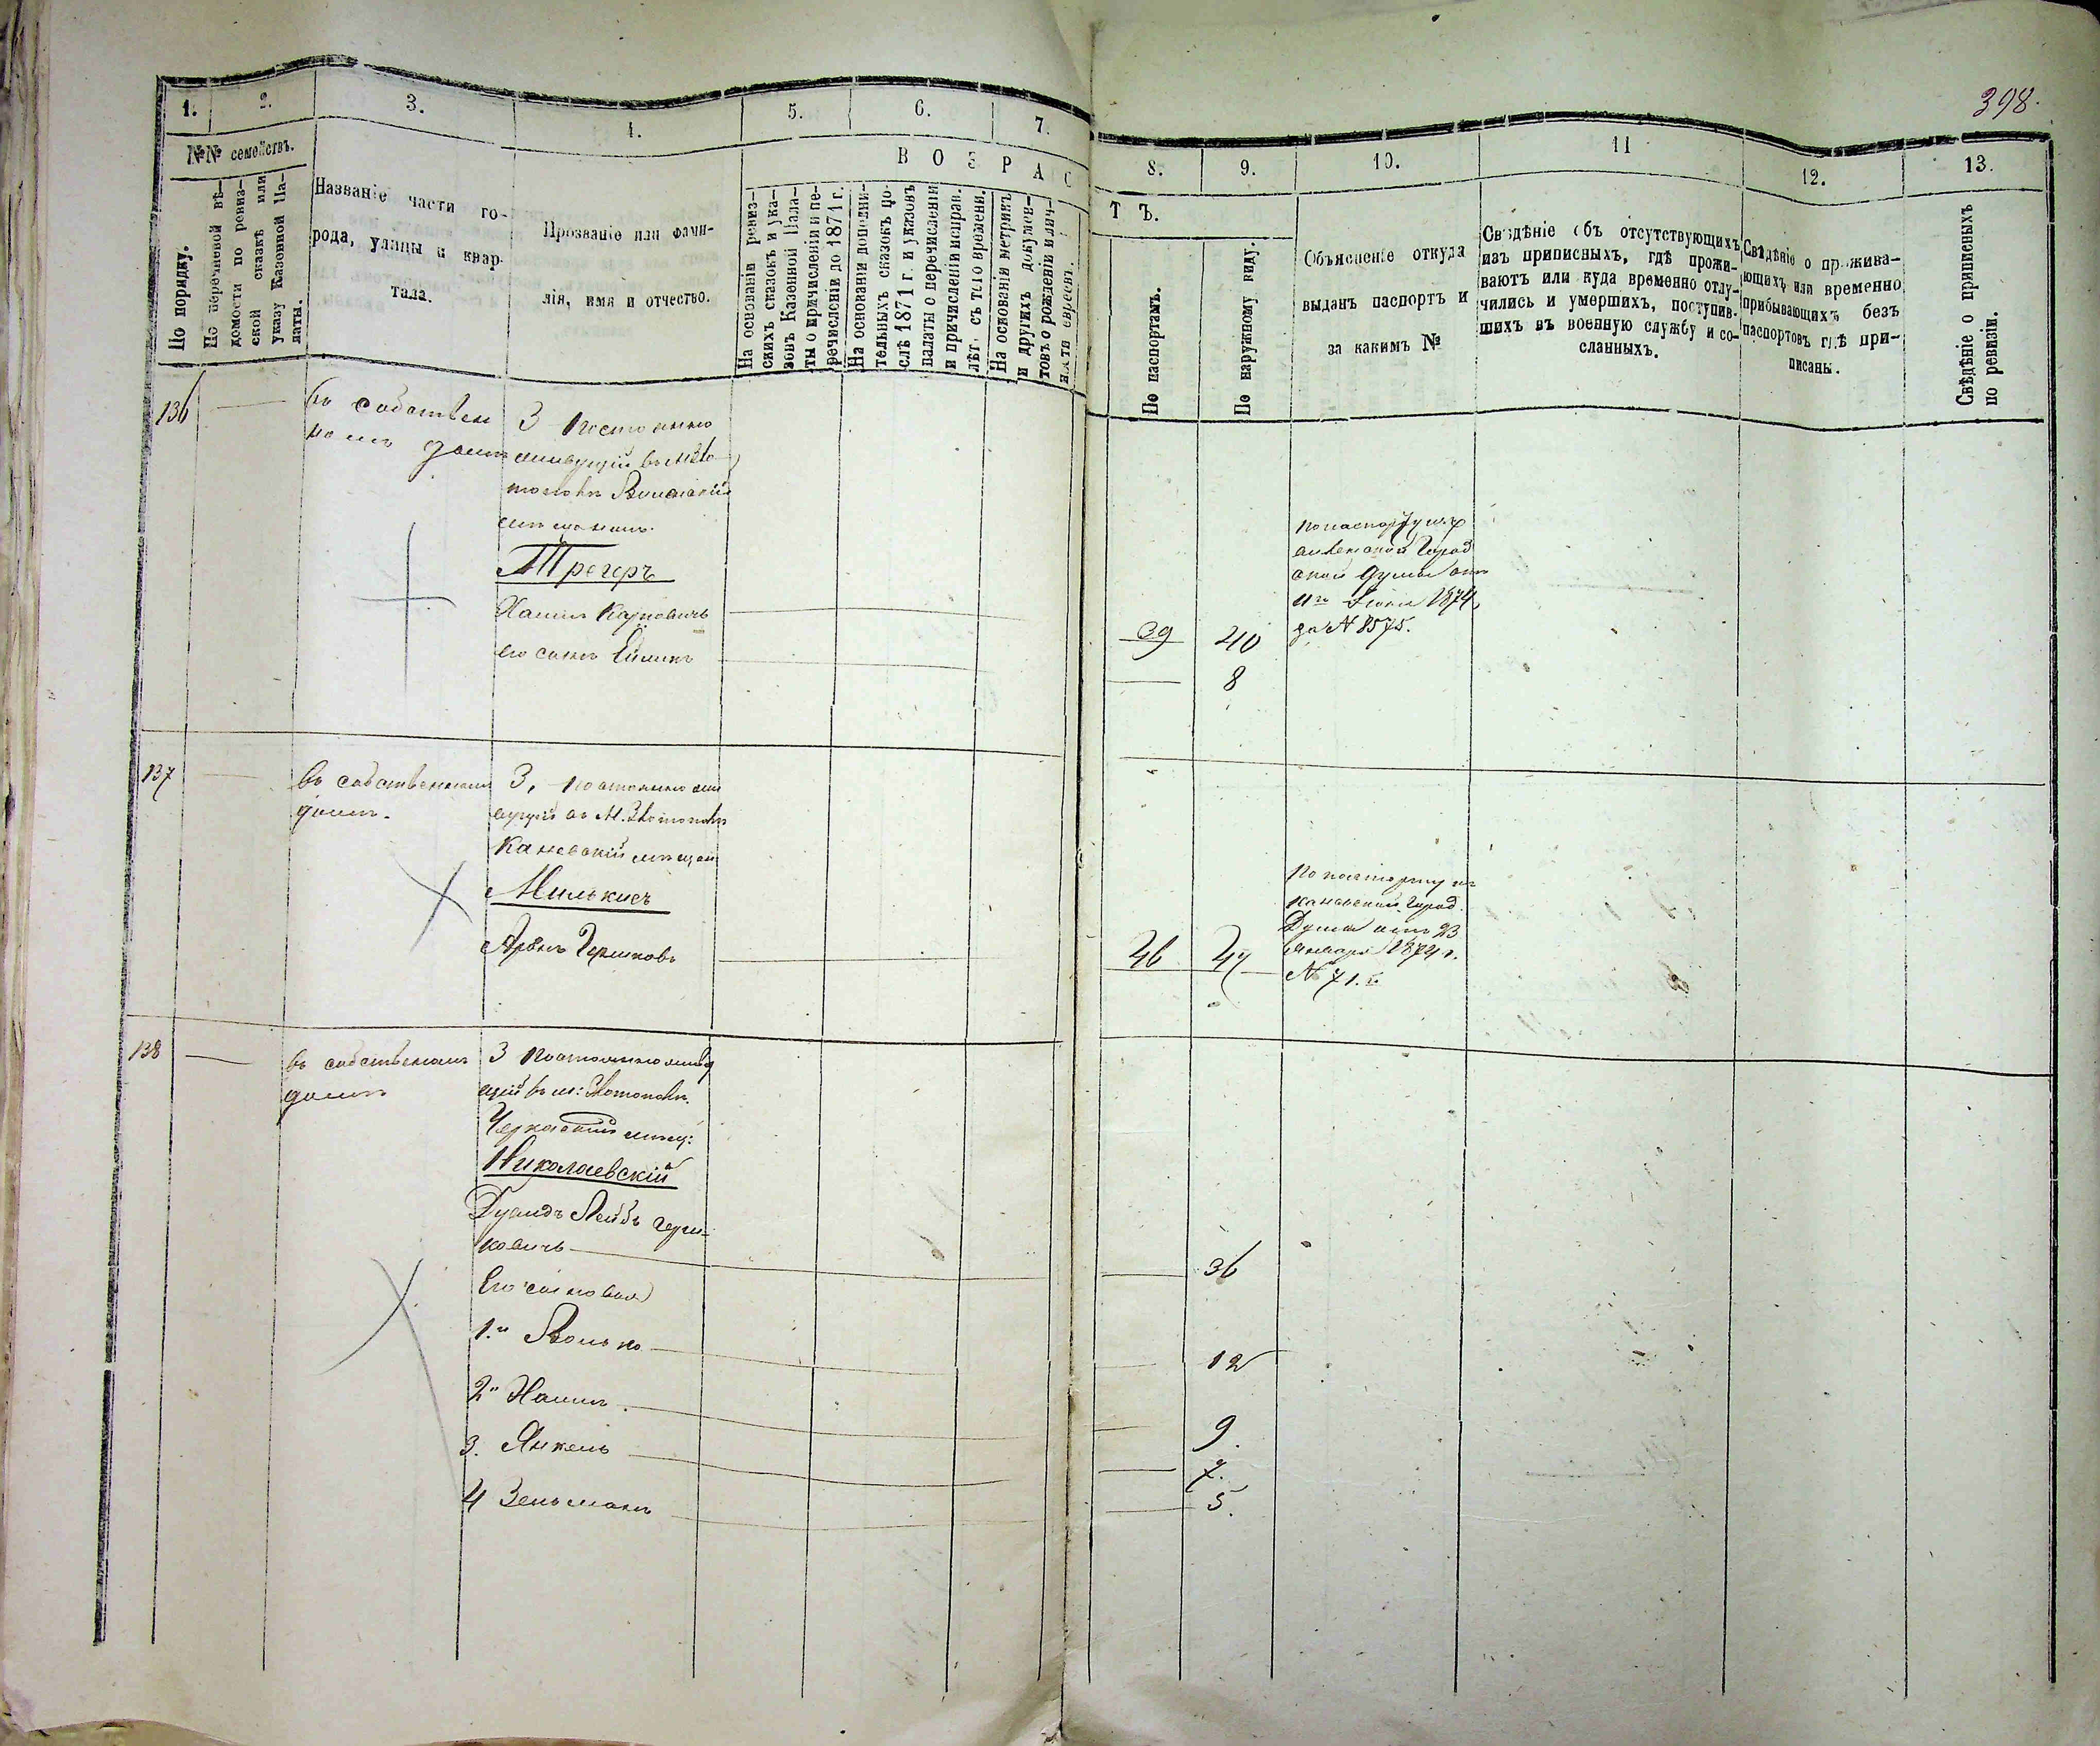 398.
1.
2.
3.
4.
5.
6.
7.
8.
9.
10.
11
12.
13.
№№ семействъ.
По порядку.
По перечневой вѣ-
домости по ревиз-
ской сказкѣ или
указу Казенной Па-
латы.
Названіе части го-
рода, улицы и квар-
тала.
Прозваніе или фами-
лія, имя и отчество.
ВОЗРАС
ТЪ.
На основаніи ревиз-
скихъ сказокъ и ука-
зовъ Казенной Пала-
ты о причисленіи и пе-
речисленіи до 1871 г.
На основаніи дополни-
тельныхъ сказокъ по-
слѣ 1871 г. и указовъ
палаты о перечисленіи
и причисленіи исправ.
лѣт. съ того времени.
На основаніи метрикъ
и другихъ докумен-
товъ о рожденіи и лич-
ности евреевъ.
По паспортамъ.
По наружному виду.
Объясненіе откуда
выданъ паспортъ и
за какимъ №
Свѣдѣніе объ отсутствующихъ
изъ приписныхъ, гдѣ прожи-
ваютъ или куда временно отлу-
чились и умершихъ, поступив-
шихъ въ военную службу и со-
сланныхъ.
Свѣдѣніе о прожива-
ющихъ или временно
прибывающихъ безъ
паспортовъ гдѣ при-
писаны.
Свѣдѣніе о приписныхъ
по ревизіи.
136
въ собствен
номъ домѣ
3 Постоянно
живущій въ М. Зло
тополѣ
мѣщанинъ
Трегеръ
Хаимъ
его сынъ
39 40
8
по паспорту
Город
ской Думы отъ
11го 1874
за № 8575.
137
въ собственномъ
домѣ.
3, Постоянно жи
вущій въ М. Златополѣ
Каневскій мѣщан
Милькисъ
Аронъ Гершковъ
46 47
По паспорту из
Каневской Город.
Думы отъ 23
Января 1874 г.
№ 71.
138
въ собственомъ
домѣ
3 Постоянно живу
щій въ м: Златополѣ.
Черкасскій мѣщ:
Николаевскій
Дувидъ Лейбъ Герш-
ковичъ
36
Его сыновья
1.й Волько
12
2й Хаимъ
9.
3. Янкель
7.
4 Зельманъ
5.